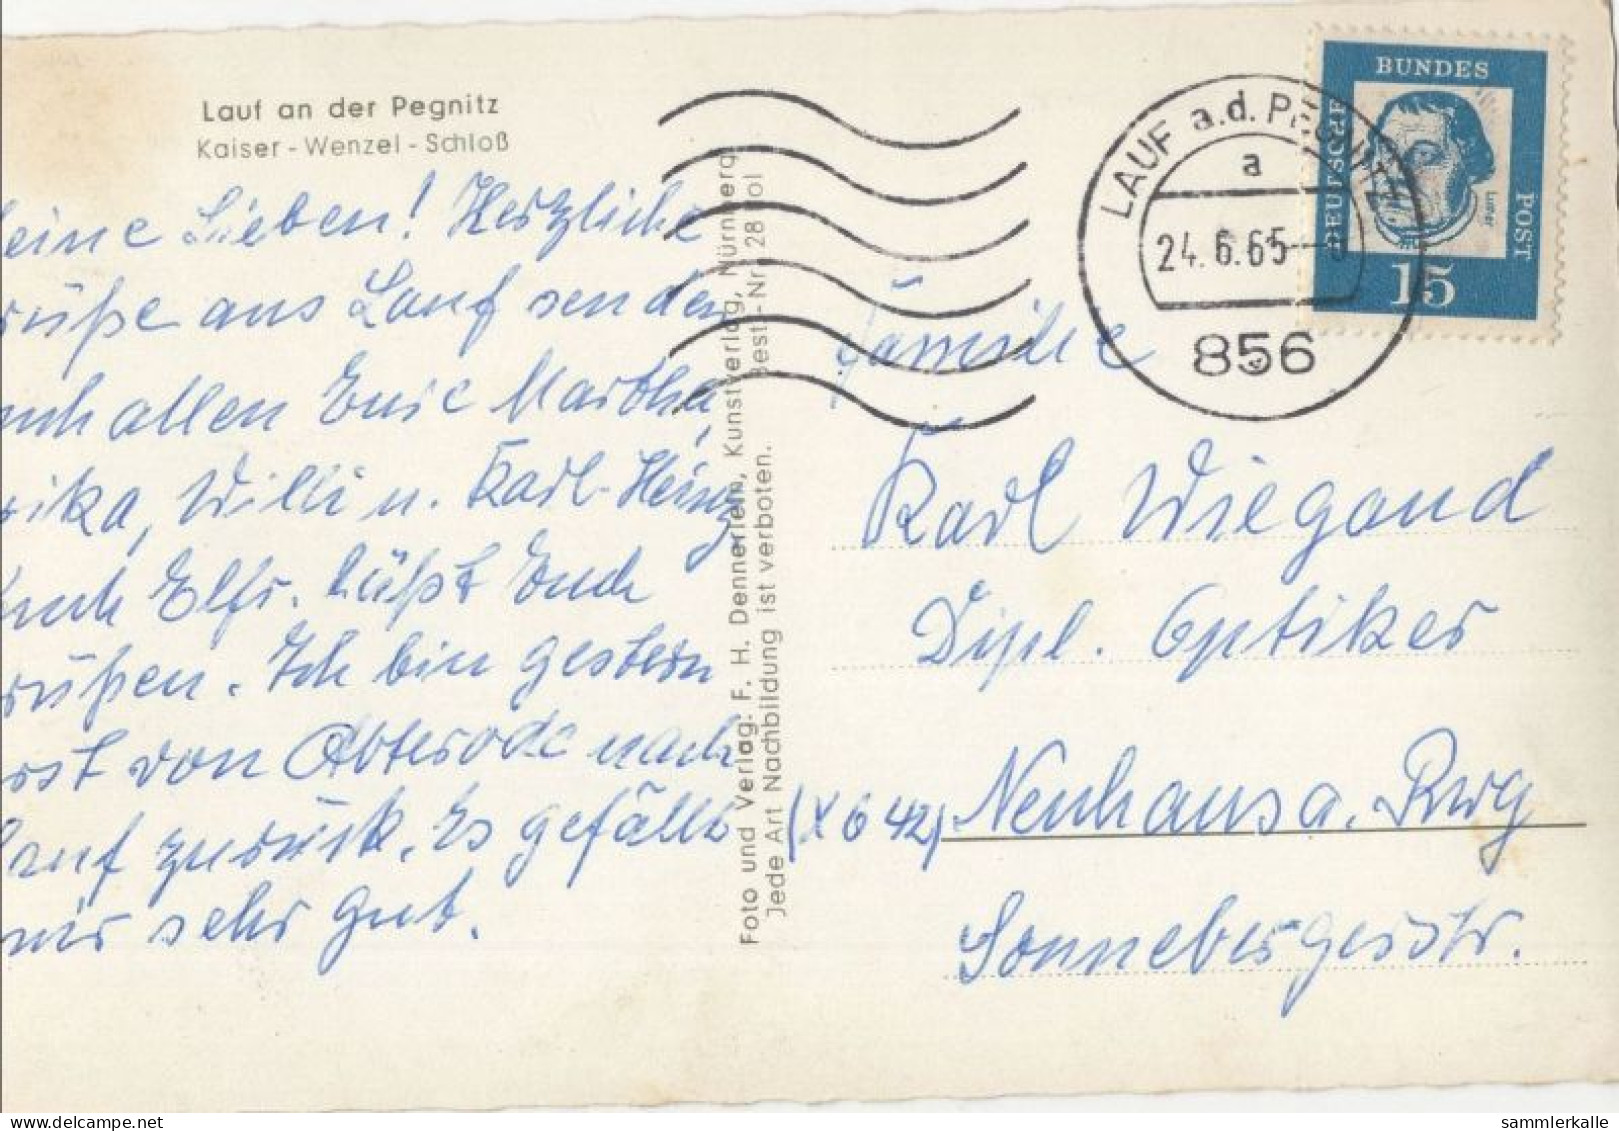 Lauf an der Pegnitz
Kaiser - Wenzel - Schloß
eine Lieben! Herzliche
rüße aus Lauf senden
uch allen Eure Martha,
rika, Willi u. Karl-Heinz
Auch Elfr. läßt Euch
rüßen. Ich bin gestern
rst von Abterode nach
Lauf zurück. Es gefällt
mir sehr gut.
Foto und Verlag: F. H. Dennerlein, Kunstverlag, Nürnberg
Jede Art Nachbildung ist verboten. Best.-Nr. 28
LAUF a.d. Pegnitz
a
24.6.65
856
DEUTSCHE
BUNDES
POST
Luther
15
Familie
Karl Wiegand
Dipl. Optiker
(X 642) Neuhaus a. Rwg
Sonnebergerstr.
sammlerkalle